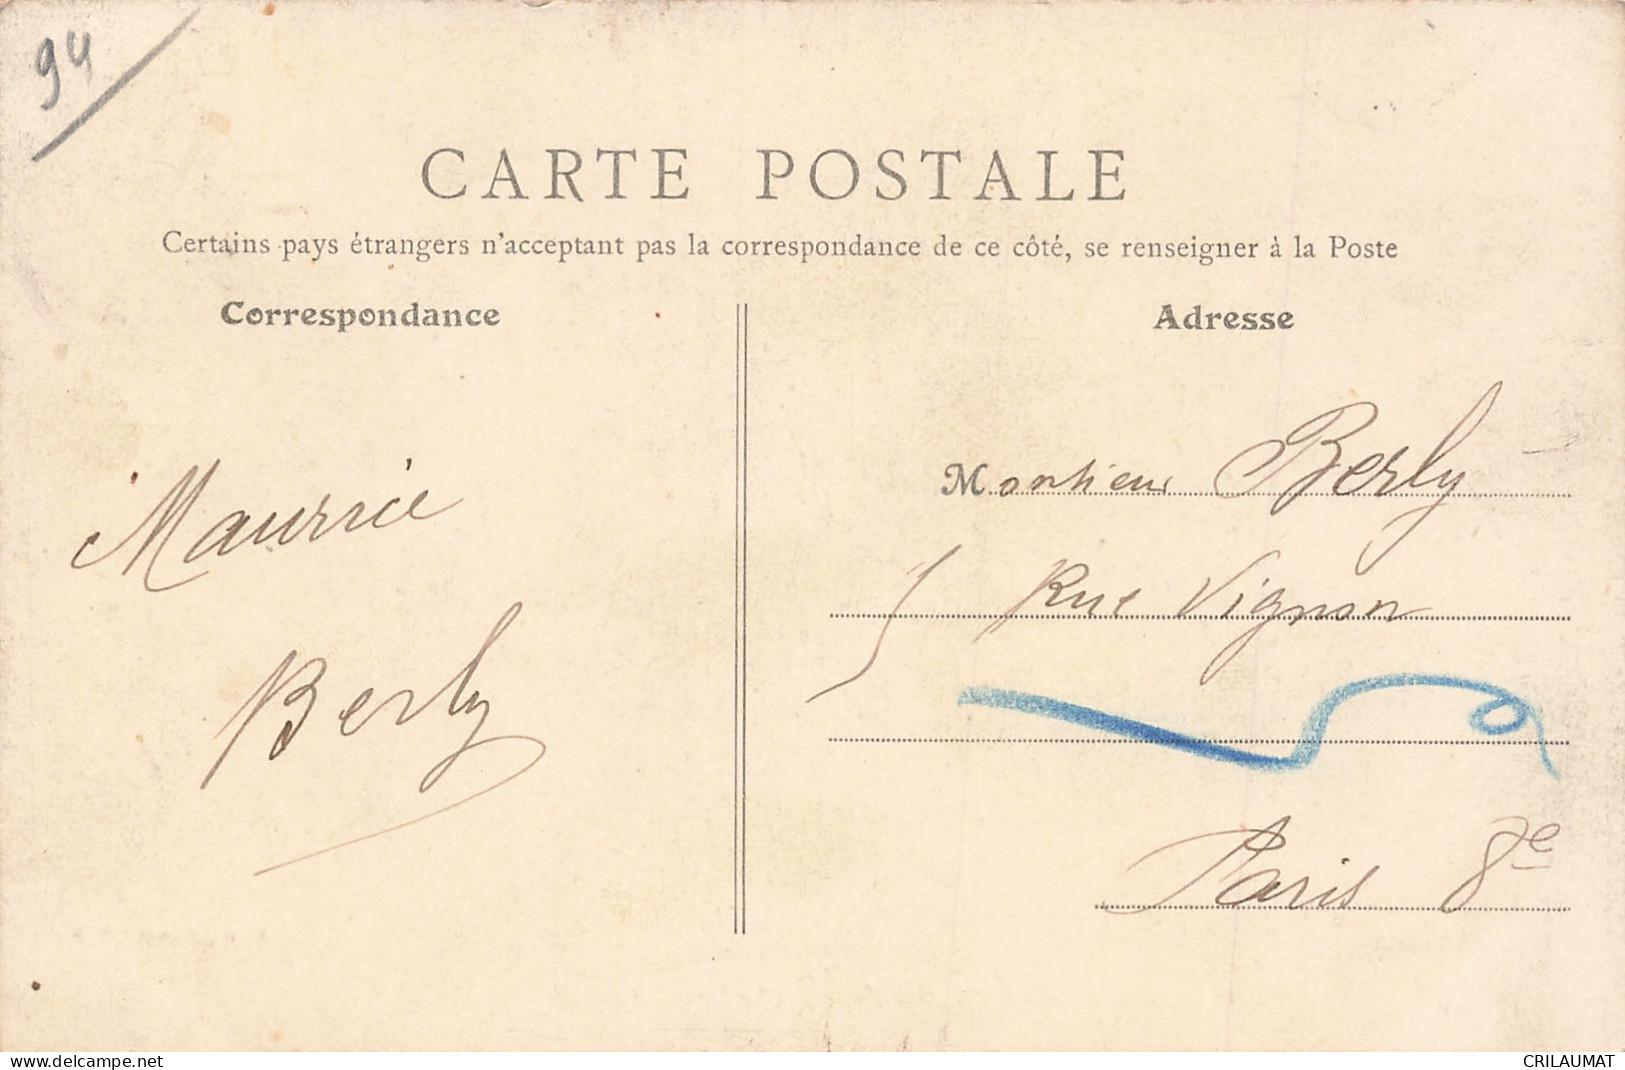 94
CARTE POSTALE
Certains pays étrangers n'acceptent pas la correspondance de ce côté, se renseigner à la Poste
Correspondance
Adresse
Maurice
Berly
Monsieur Berly
5 Rue Vignon
Paris 8e
www.delcampe.net
CRILAUMAT